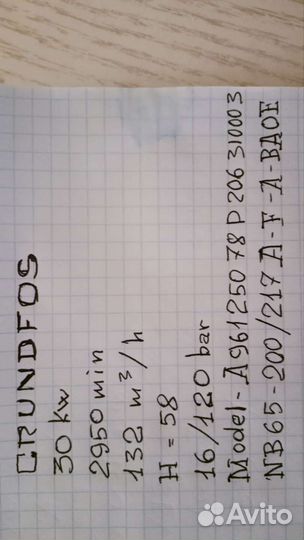 GRUNDFOS
30 kw
2950 min
132 m³/h
H = 58
16/120 bar
Model-A96125078P206310003
NB65-200/217 A-F-A-BAQE
Avito